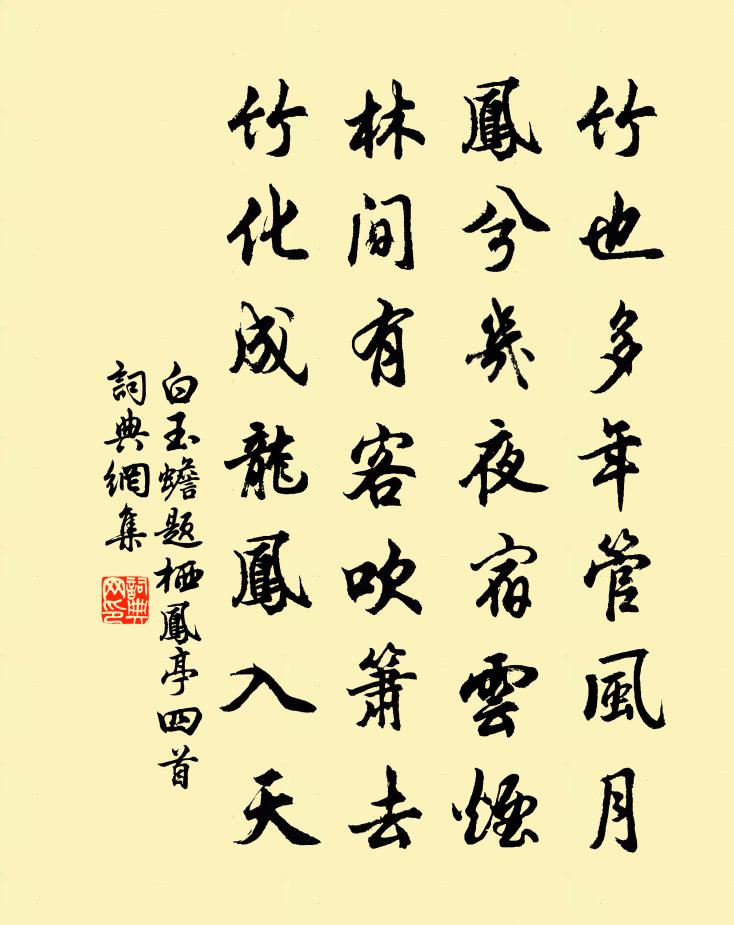 竹也多年管風月
鳳兮幾夜宿雲煙
林間有客吹簫去
竹化成龍鳳入天
白玉蟾題栖鳳亭四首
詞典網集
詞典網印